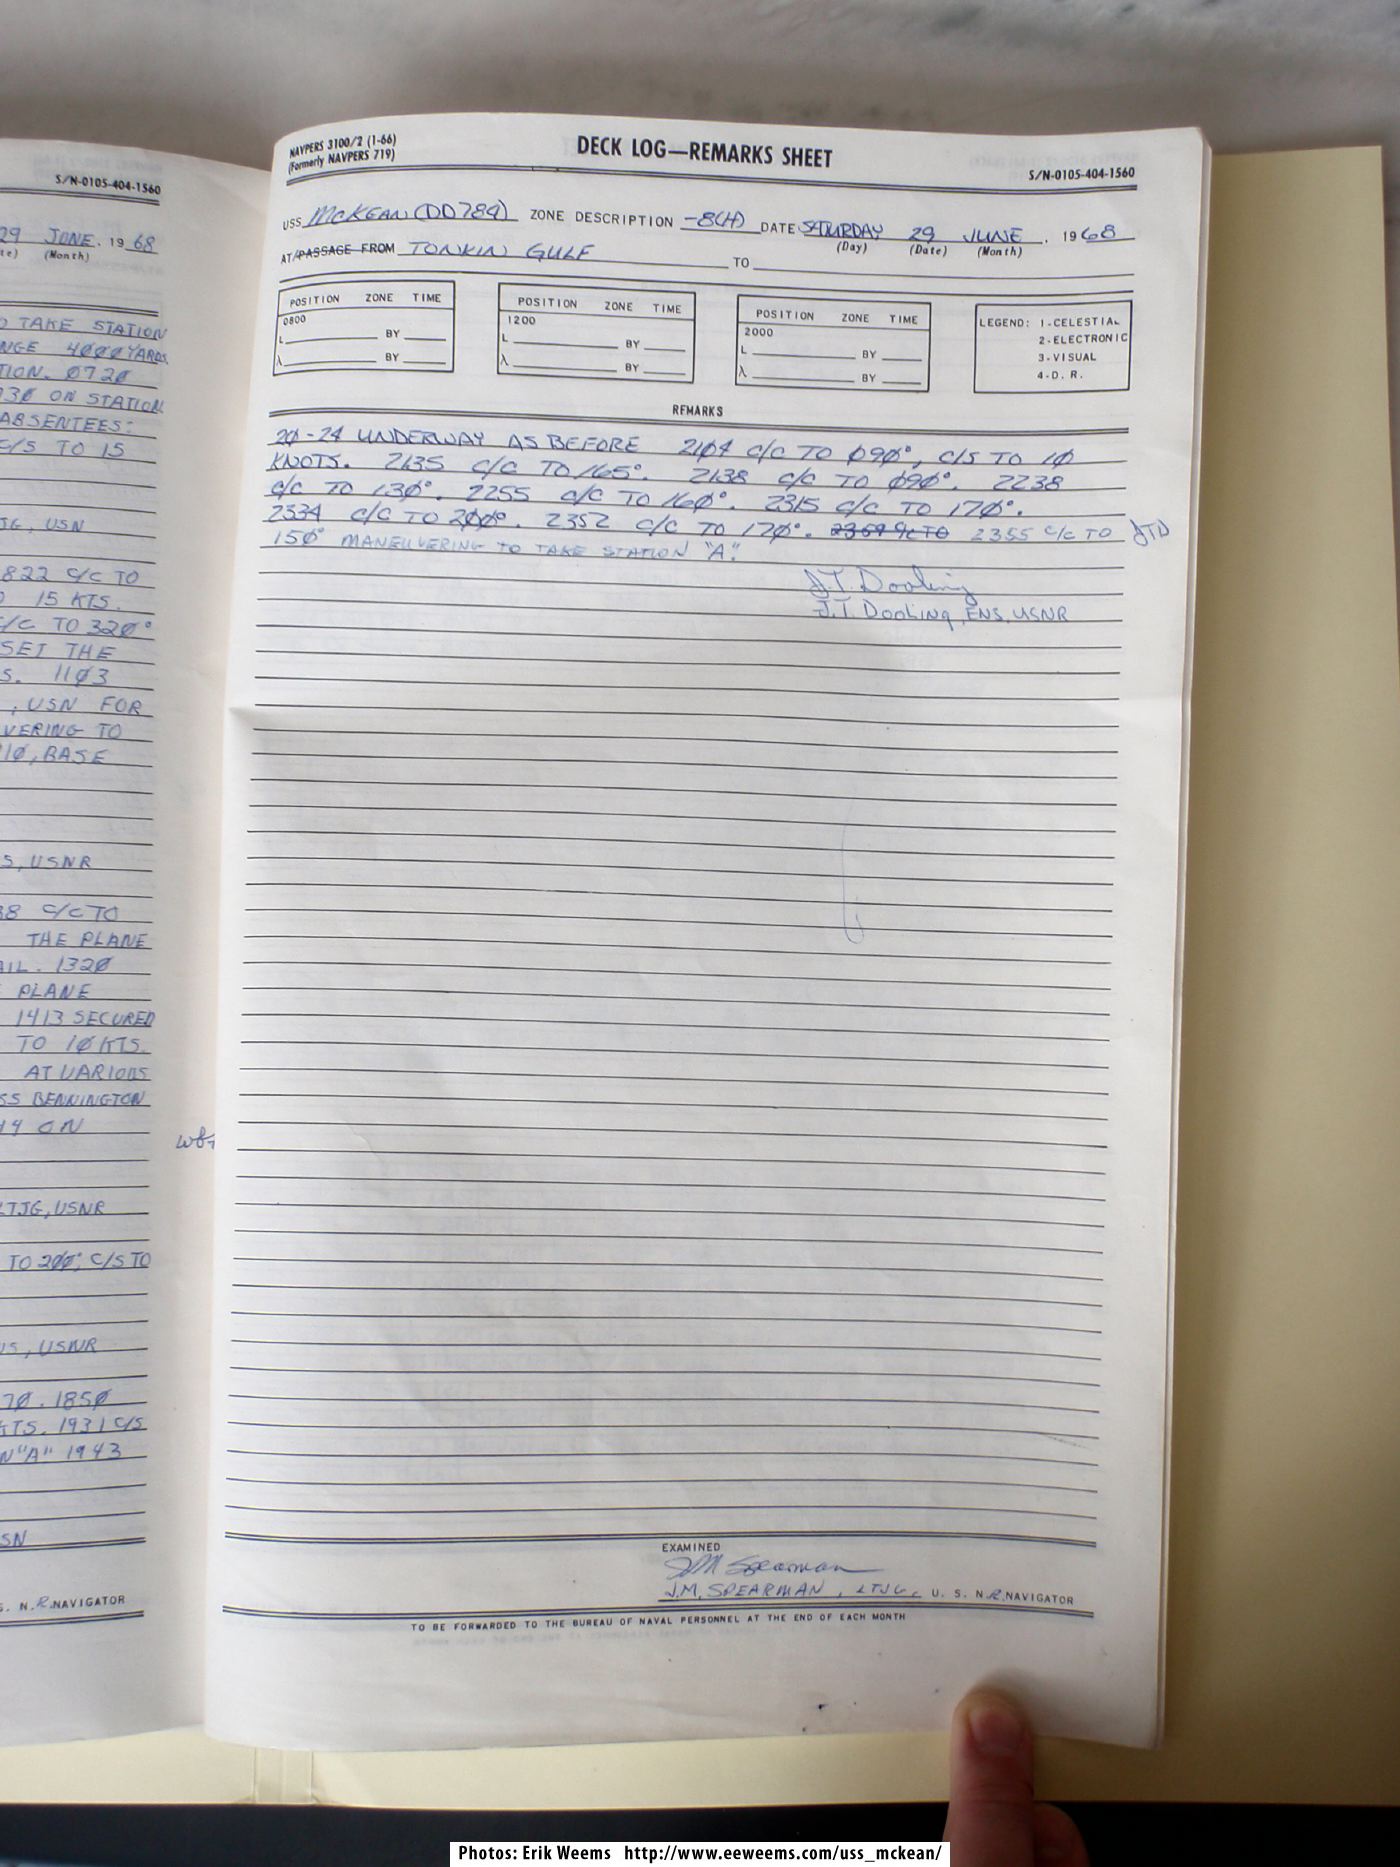 S/N-0105-404-1560
29 JUNE. 19 68
(Month)
TAKE STATION
4000 YARDS
0720
ON STATION
ABSENTEES:
C/S TO 15
, USN
822 C/C TO
15 KTS.
C/C TO 320°
SET THE
1103
, USN FOR
TO
BASE
, USNR
C/C TO
THE PLANE
1320
PLANE
1413 SECURED
TO 10 KTS.
AT VARIOUS
BENNINGTON
ON
WBT
LTJG, USNR
TO 200°, C/S TO
, USNR
1850
KTS. 1931 C/S
"A" 1943
N. R. NAVIGATOR
NAVPERS 3100/2 (1-66)
(Formerly NAVPERS 719)
DECK LOG—REMARKS SHEET
S/N-0105-404-1560
USS McKEAN (DD784) ZONE DESCRIPTION -8(H) DATE SATURDAY 29 JUNE . 19 68
(Day) (Date) (Month)
AT/PASSAGE FROM TONKIN GULF TO
POSITION ZONE TIME
0800
L BY
λ BY
POSITION ZONE TIME
1200
L BY
λ BY
POSITION ZONE TIME
2000
L BY
λ BY
LEGEND: 1-CELESTIAL
2-ELECTRONIC
3-VISUAL
4-D. R.
REMARKS
20-24 UNDERWAY AS BEFORE 2104 C/C TO 090°, C/S TO 10
KNOTS. 2135 C/C TO 165°. 2138 C/C TO 090°. 2238
C/C TO 130°. 2255 C/C TO 160°. 2315 C/C TO 170°.
2334 C/C TO 200°. 2352 C/C TO 170°. C/C TO 2355 C/C TO JTD
150° MANEUVERING TO TAKE STATION "A".
J.T. Dooling
J.T. Dooling, ENS, USNR
EXAMINED
JM Spearman
J.M. SPEARMAN, LTJG, U. S. N. R. NAVIGATOR
TO BE FORWARDED TO THE BUREAU OF NAVAL PERSONNEL AT THE END OF EACH MONTH
Photos: Erik Weems http://www.eeweems.com/uss_mckean/